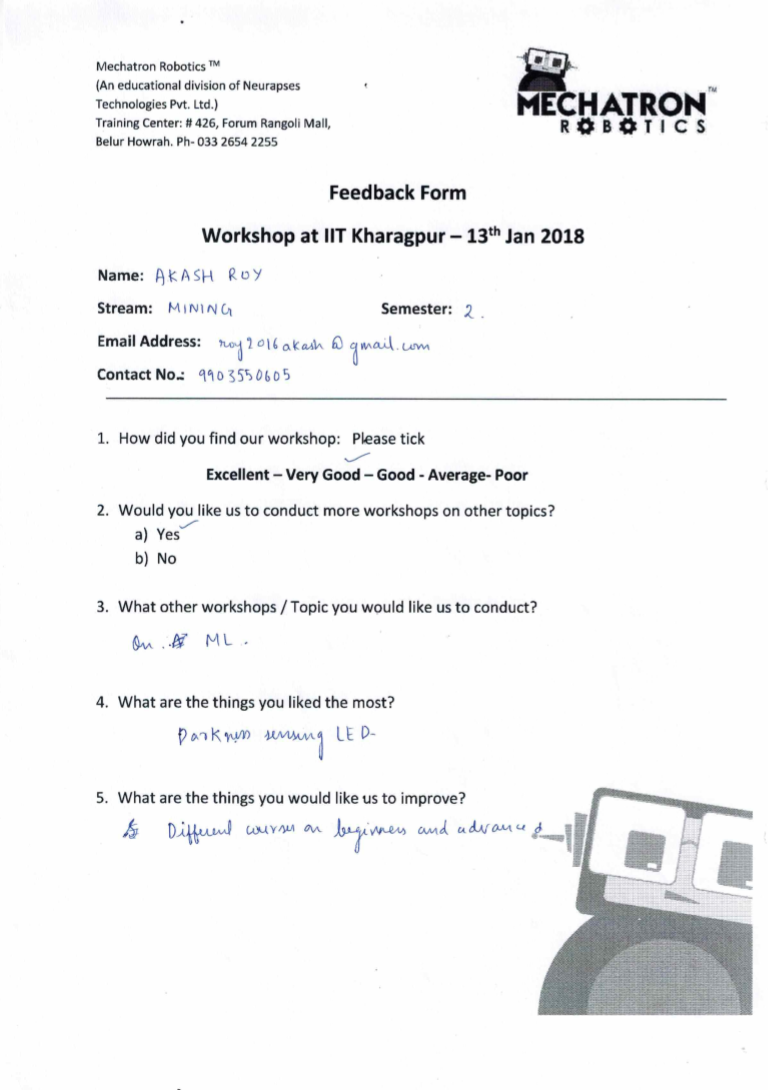 Mechatron Robotics ™
(An educational division of Neurapses
Technologies Pvt. Ltd.)
Training Center: # 426, Forum Rangoli Mall,
Belur Howrah. Ph- 033 2654 2255
MECHATRON™
ROBOTICS
Feedback Form
Workshop at IIT Kharagpur – 13th Jan 2018
Name: AKASH ROY
Stream: MINING Semester: 2.
Email Address: roy2016akash@gmail.com
Contact No.: 9903550605
1. How did you find our workshop: Please tick
Excellent – Very Good – Good - Average- Poor
2. Would you like us to conduct more workshops on other topics?
a) Yes
b) No
3. What other workshops / Topic you would like us to conduct?
On ML.
4. What are the things you liked the most?
Darkness sensing LED-
5. What are the things you would like us to improve?
Different courses on beginners and advance